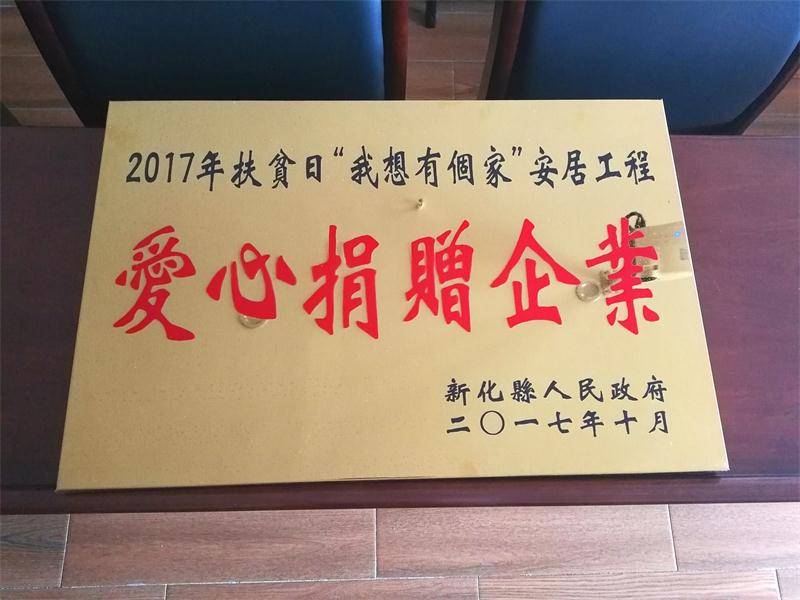 2017年扶貧日“我想有個家”安居工程
愛心捐贈企業
新化縣人民政府
二〇一七年十月